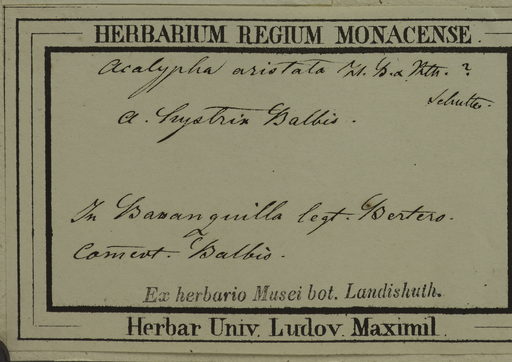 HERBARIUM REGIUM MONACENSE
Acalypha aristata H. B. & Kth. ?
Schultes.
A. hystrix Balbis.
In Baranquilla legt. Bertero.
Balbis.
Ex herbario Musei bot. Landishuth.
Herbar Univ. Ludov. Maximil